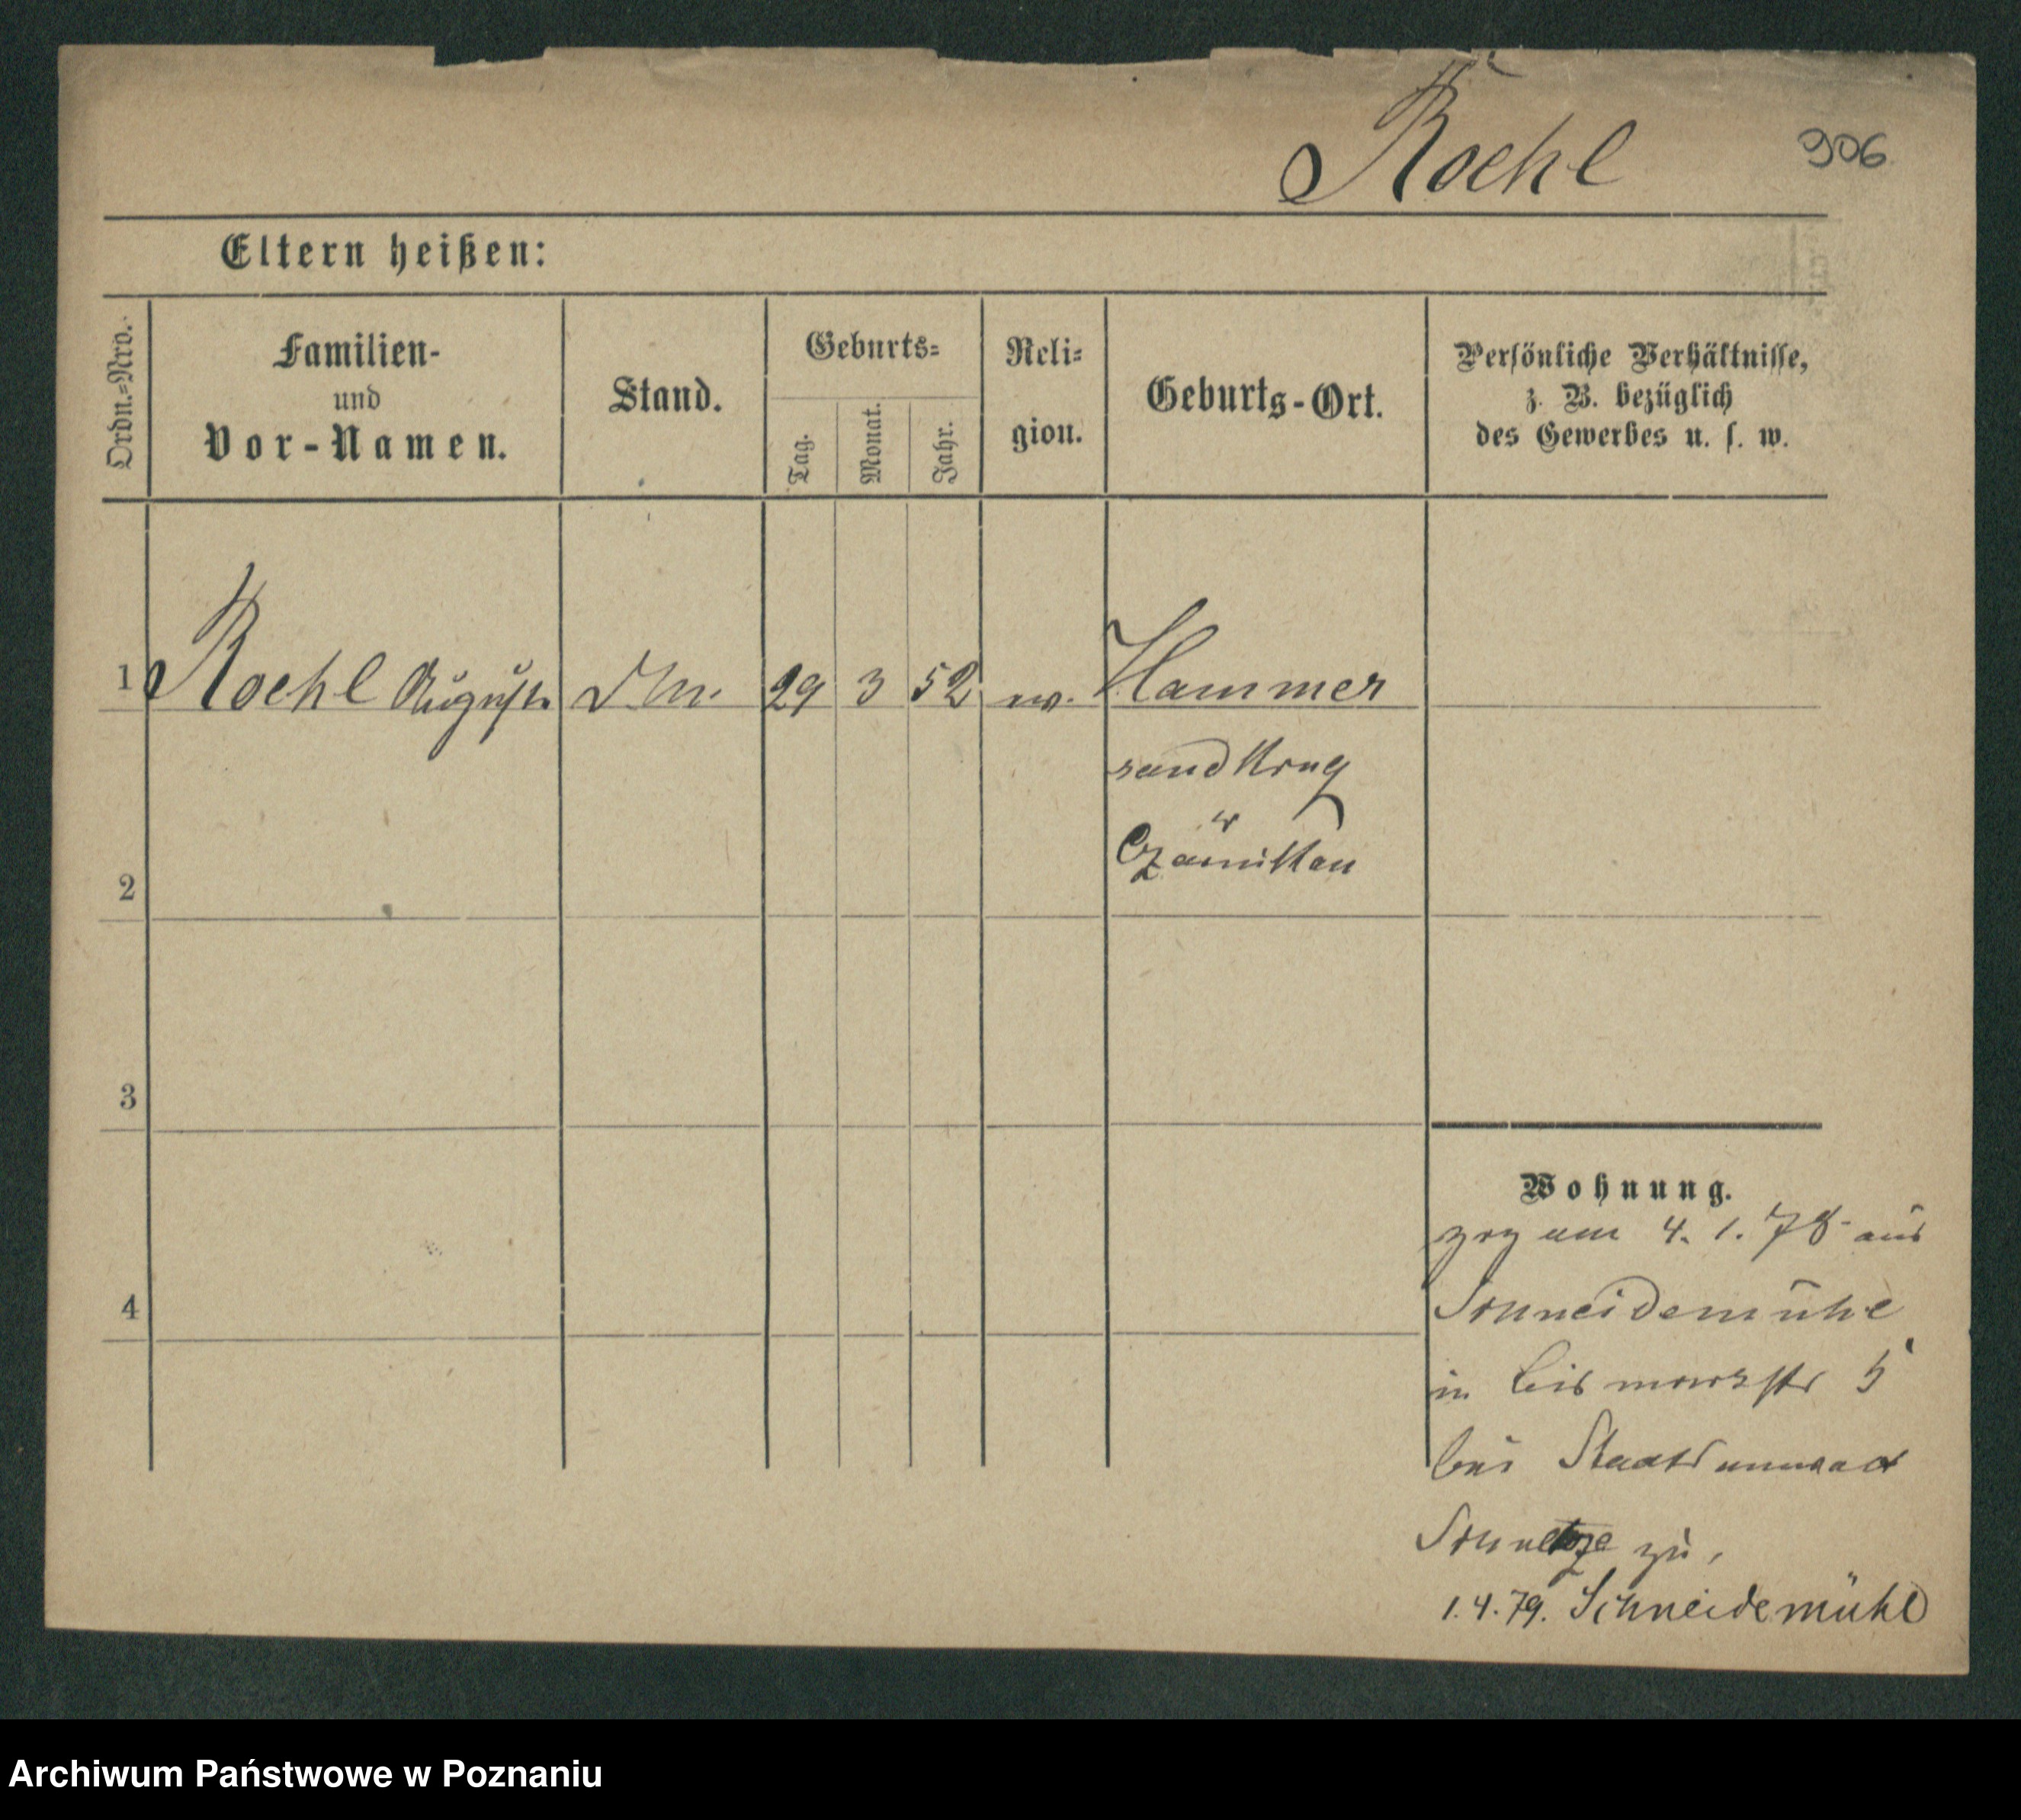 Roehl
906
Eltern heißen:
Ordn.=Nro.
Familien-
und
Vor-Namen.
Stand.
Geburts=
Tag.
Monat.
Jahr.
Reli=
gion.
Geburts-Ort.
Persönliche Verhältnisse,
z. B. bezüglich
des Gewerbes u. s. w.
1 Roehl 29 3 52 ev. Hammer
sandkrug
Czarnikau
2
3
4
Wohnung.
zog am 4. 1. 78 aus
Schneidemühl
in Bismarckstr 5
bei Staatsanwalt
zu,
1. 4. 79. Schneidemühl
Archiwum Państwowe w Poznaniu